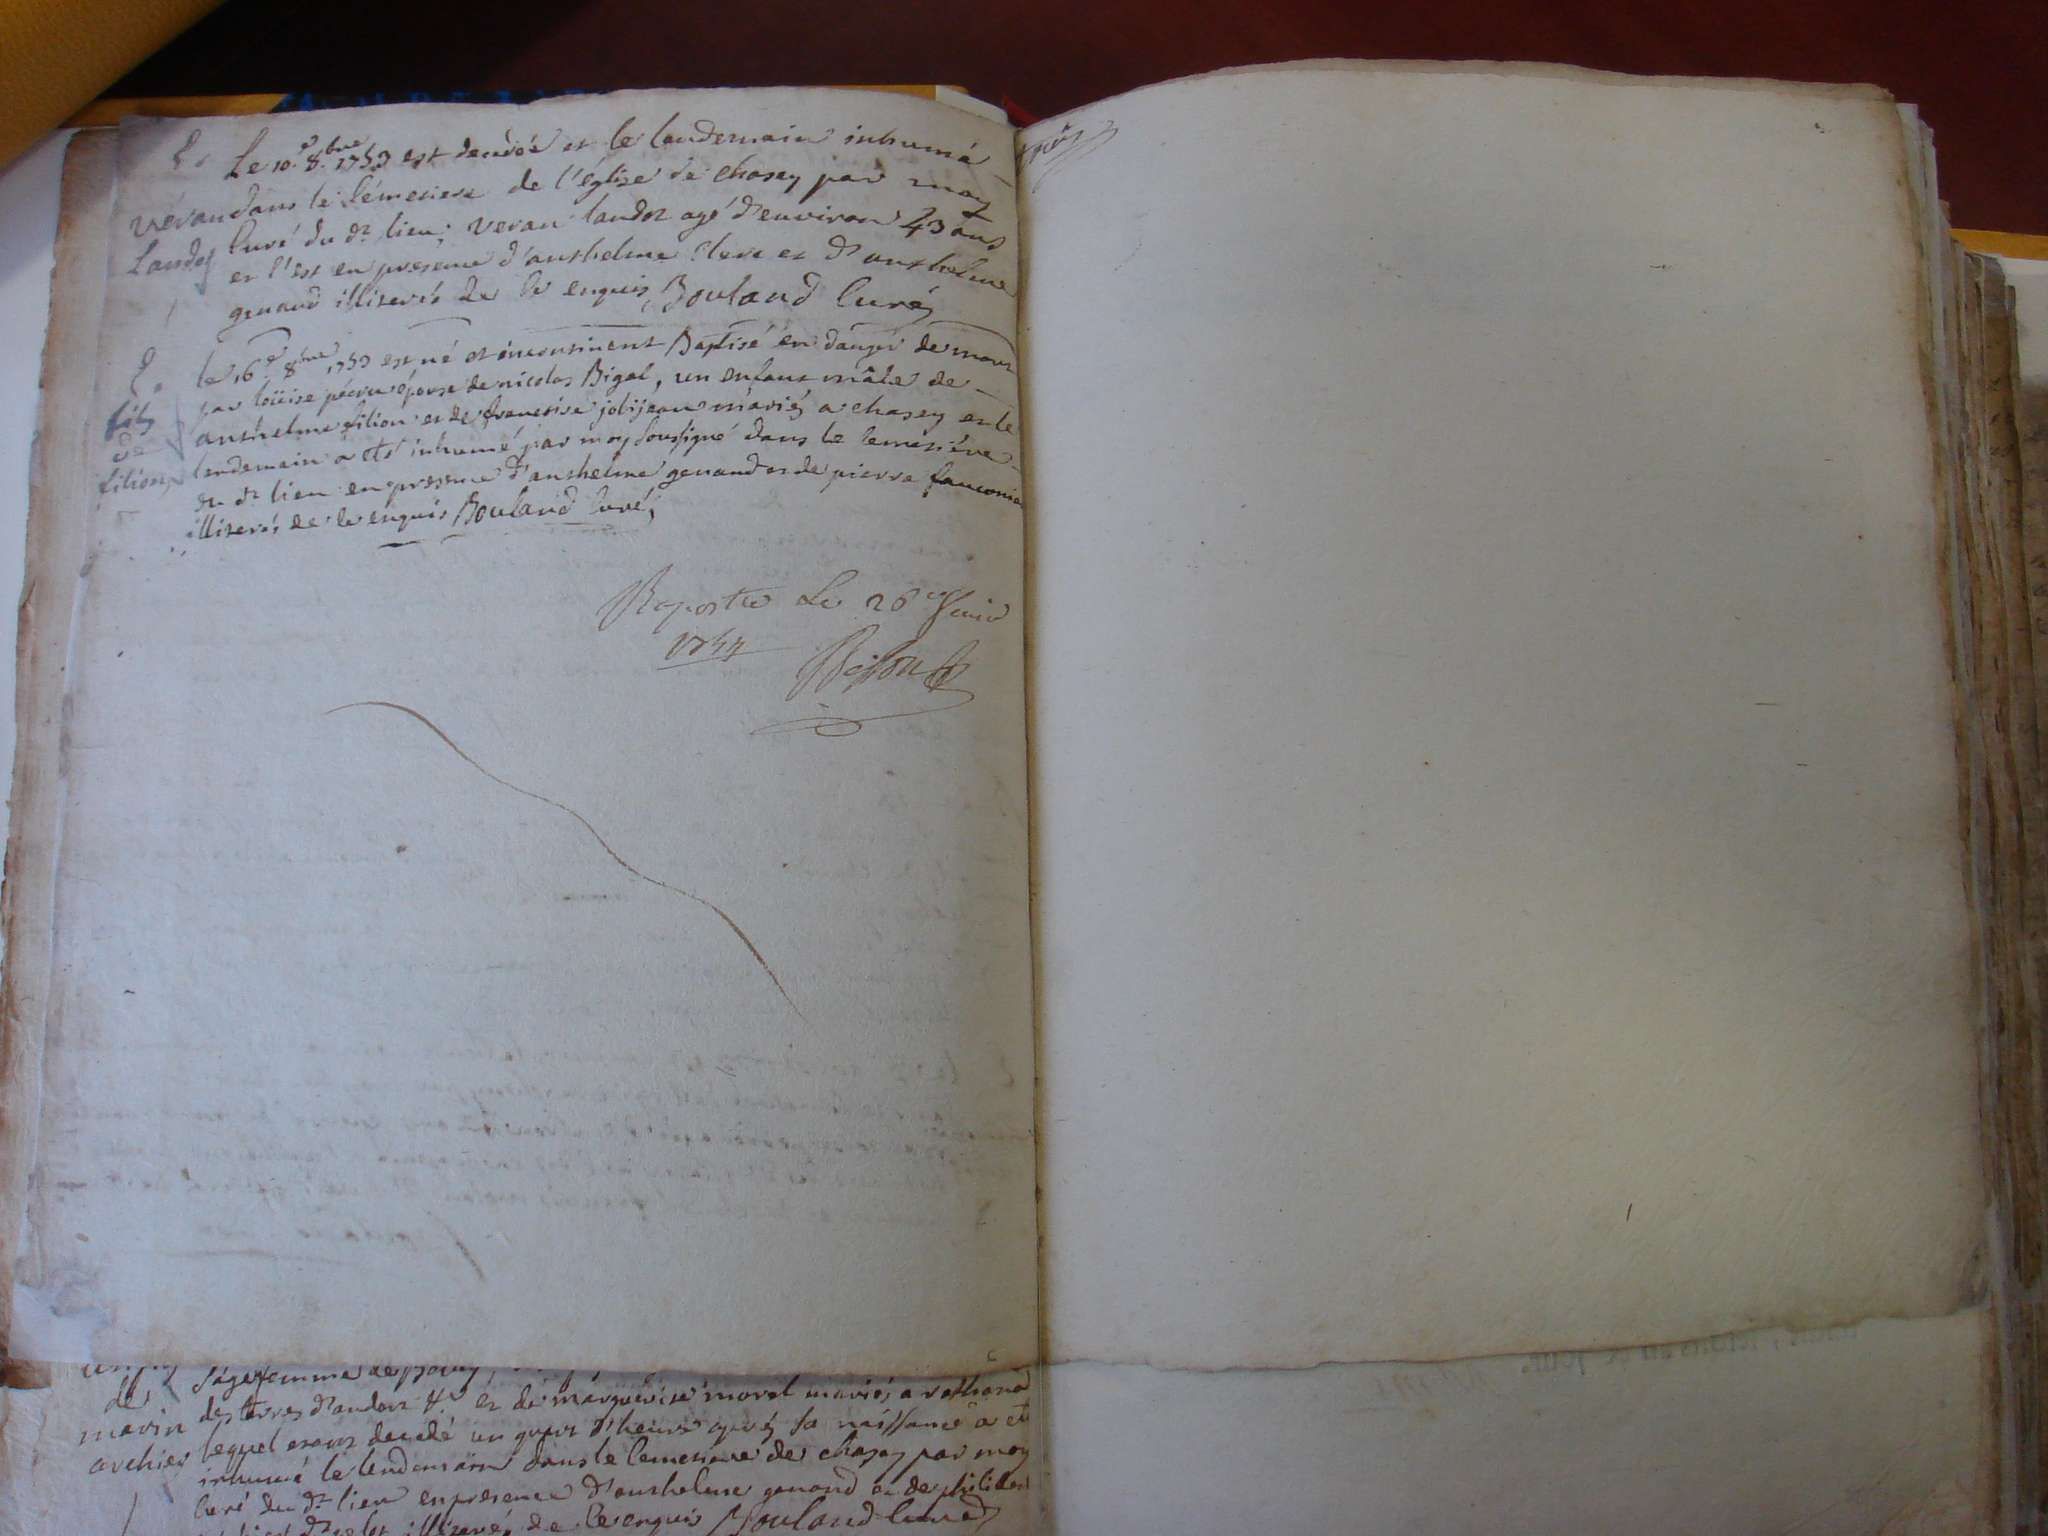 Le 10.e 8.bre 1753 est décédé et le landemain inhumé
veran dans le Cémetiere de l'église de chasey par moy
Landoz Curé du dt lieu; veran landoz agé d'environ 43 ans
et l'est en presence d'anthelme Clerc et d'anthelme
genand illiterés de ce enquis, Bouland Curé,
le 16.e 8.bre 1753 est né et incontinent Baptisé en danger de mort
par loüise épouse de nicolas Bigal, un enfant mâle de
fils anthelme filion et de francoise jolijean mariés a chasey et le
de lendemain a été inhumé par moy soussigné dans le cemetiére
filion, du dt lieu en presence d'anthelme genand et de pierre fauconier
illiterés de ce enquis Bouland Curé,
le 26e
1754
sagefemme de
de des terres d'andert &c et de marguerite morel mariés a rothonod
marin lequel etant decedé un quart d'heure aprés sa naissance a eté
archier inhumé le lendemain dans le Cemetiere de chasey par moy
Curé du dt lieu en presence d'anthelme genand et de
illiterés de ce enquis Bouland Curé,